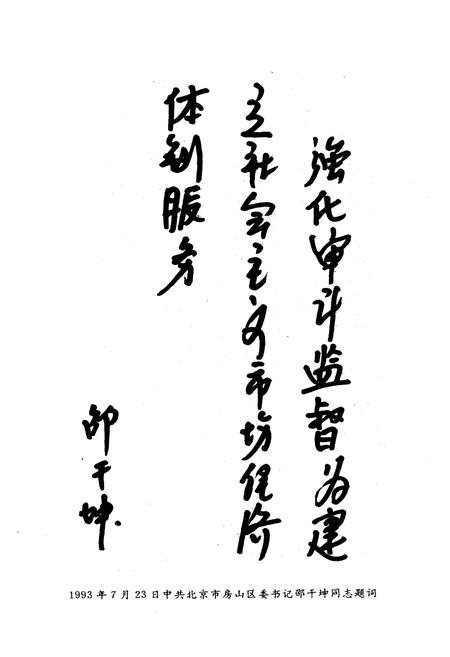 强化审计监督为建
立社会主义市场经济
体制服务
邵干坤
1993年7月23日中共北京市房山区委书记邵干坤同志题词